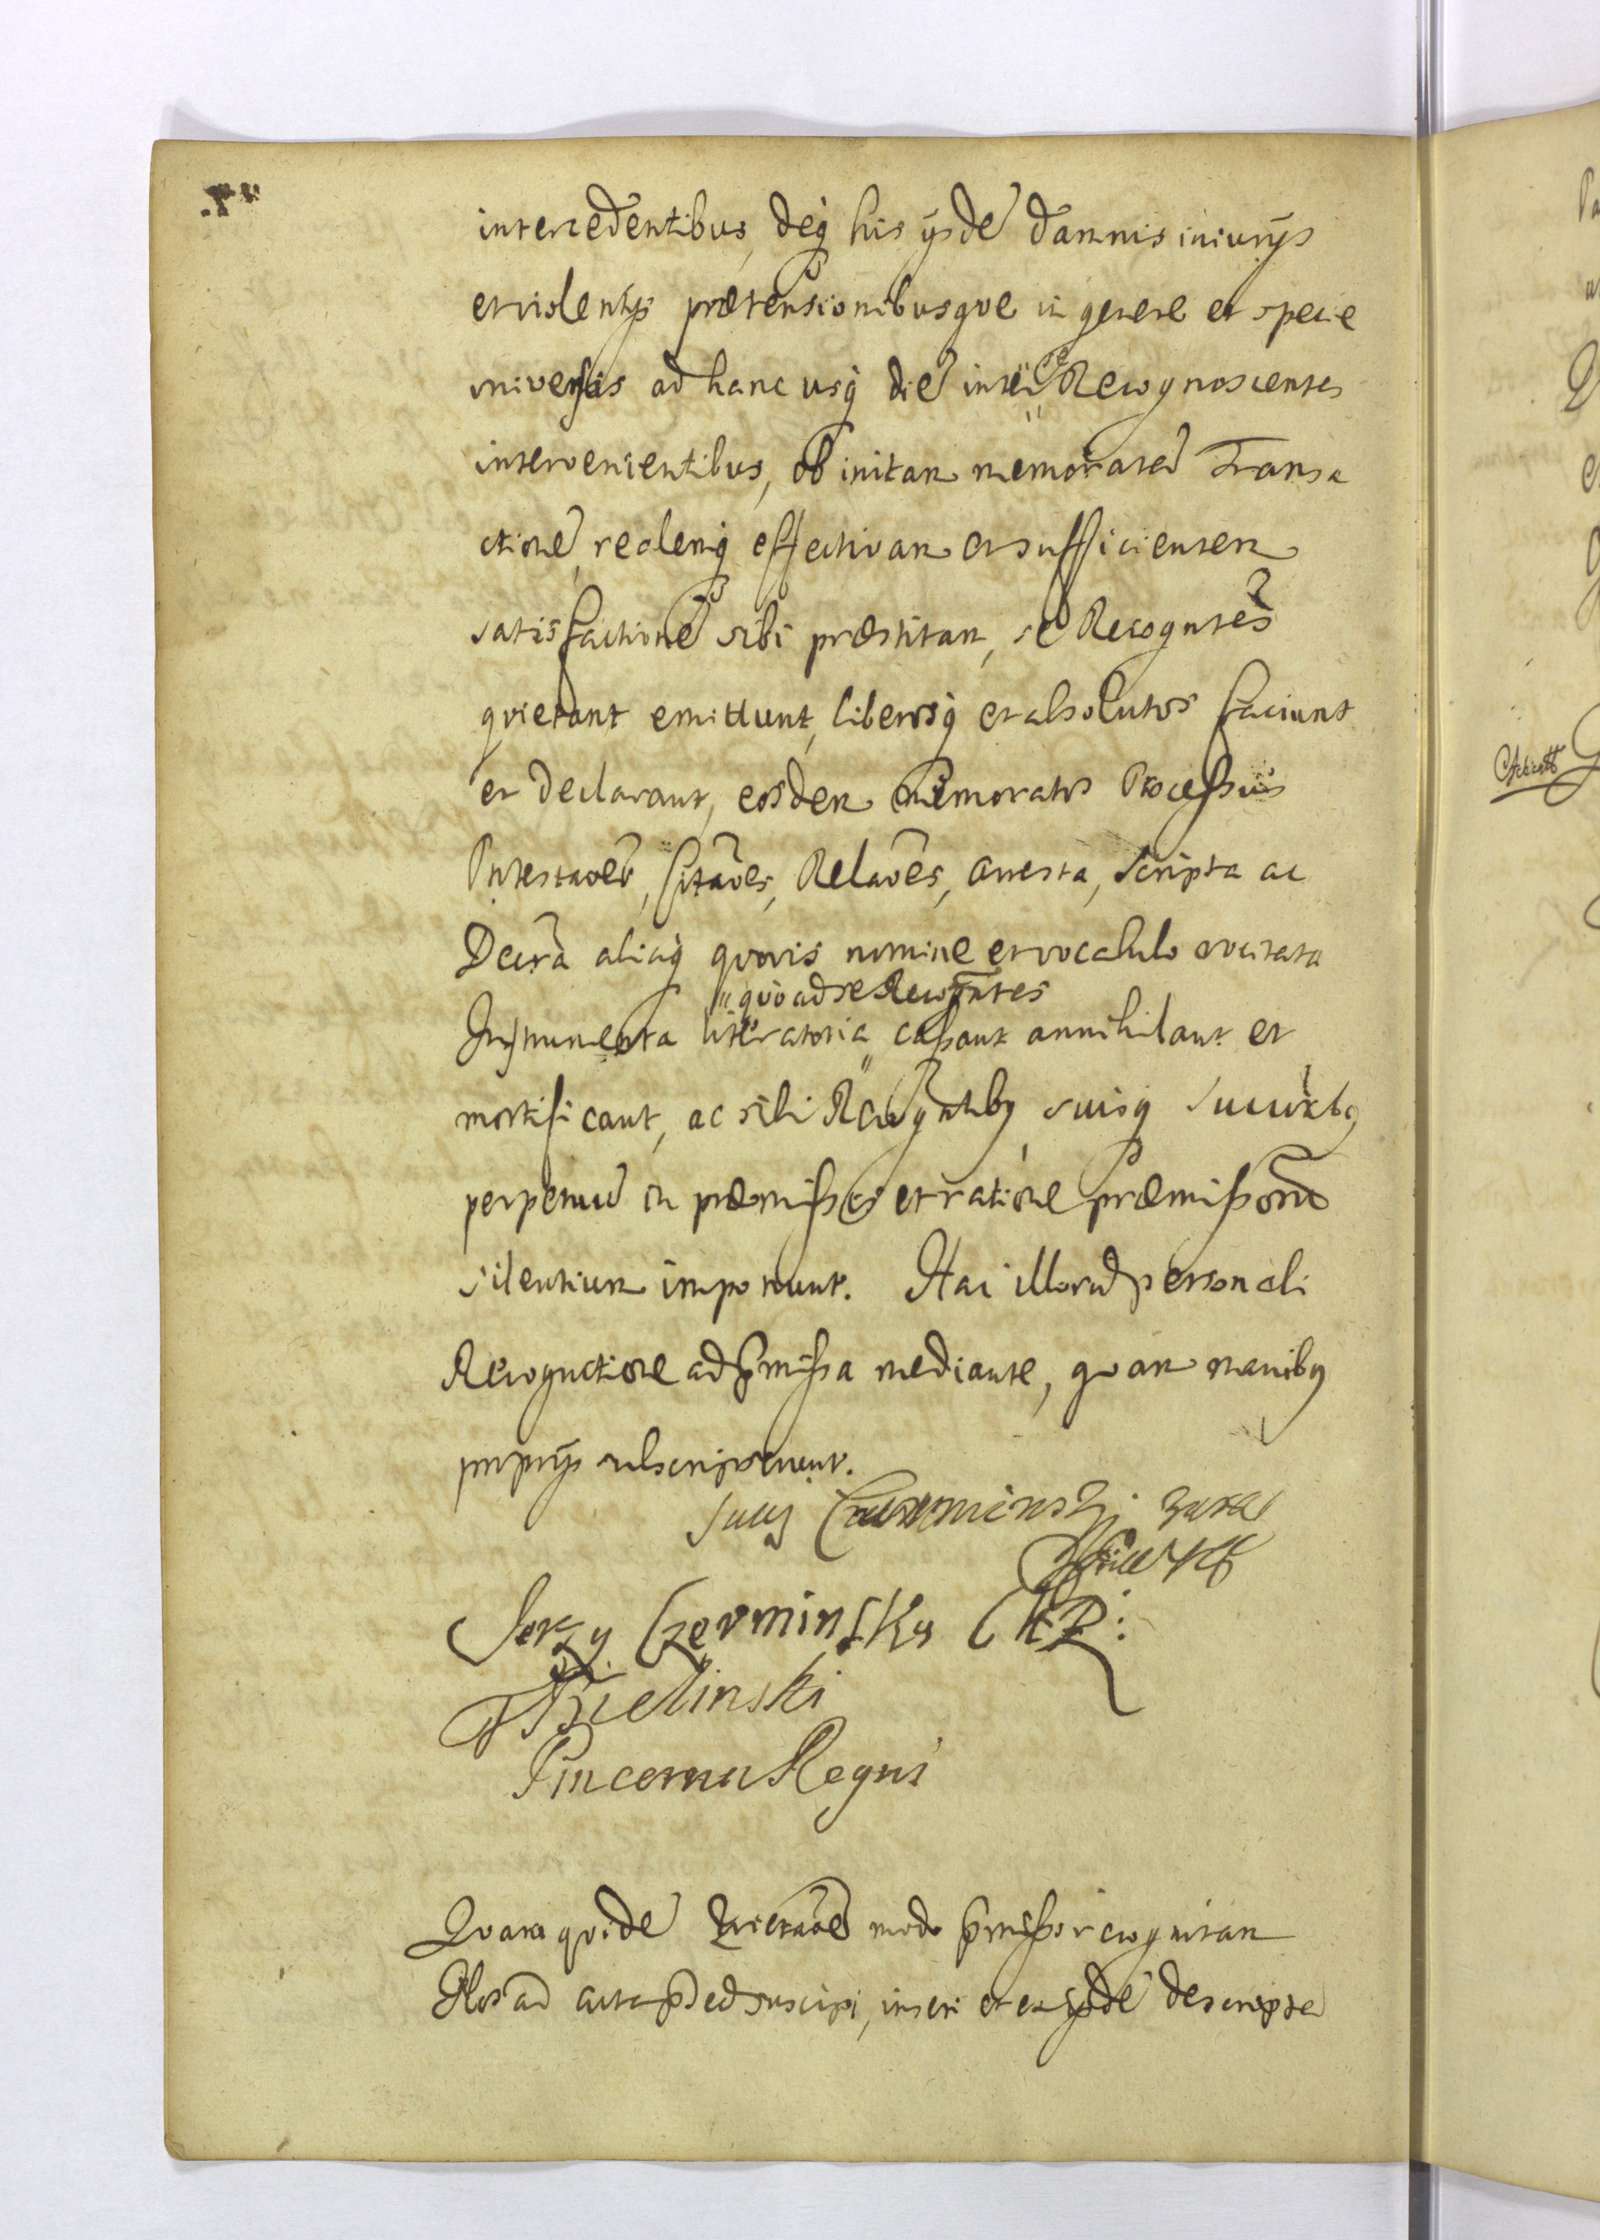 intercedentibus, deq his ijsdē damnis iniurijs
et violentijs prætensionibusqve in genere et specie
universis ad hanc usq diē inter se Recognoscentes
intervenientibus, ob initam memoratā Transa
ctionē, realemq effectivam et sufficientem
satisfactionē sibi præstitam, se Recogntēs
qvietant emittunt, liberosq et absolutos faciunt
et declarant, eosdem memoratos Processus
Protestaōes, Citaōes, Relaōes, Arresta, Scripta ac
Decrā aliaq qvovis nomine et vocabulo vocitata
qvo ad se Recogntes
Instrumenta literatoria cassant annihilant et
mortificant, ac sibi Recogntibq suisq Succrībq
perpetuū in præmissis et ratione præmissorū
silentium imponunt. Hac illorū personali
Recognitione ad pmissa mediante, qvam manibq
proprijs subscripserunt.
Czerminski
Jerzy Czerminsky
Bielinski
Pincerna Regni
Qvam qvidē Qvietaōē modo pmisso recognitam
ad acta suscipi, inseri et ex ijsdē descripta